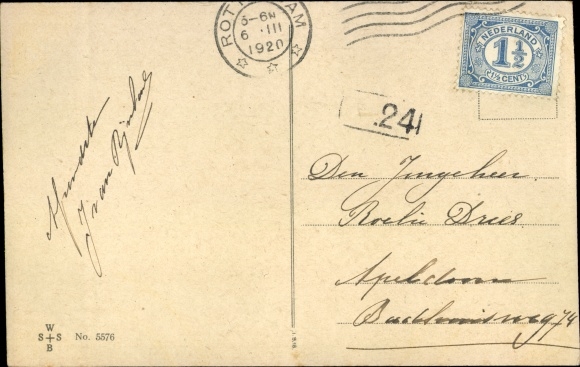 ROTTERDAM
5-6N
6 III
1920
NEDERLAND
1½
1½ CENT
241
Afzendster
J van
Den Jongeheer
Roelie Dries
Apeldoorn
74
W
S S
B
No. 5576